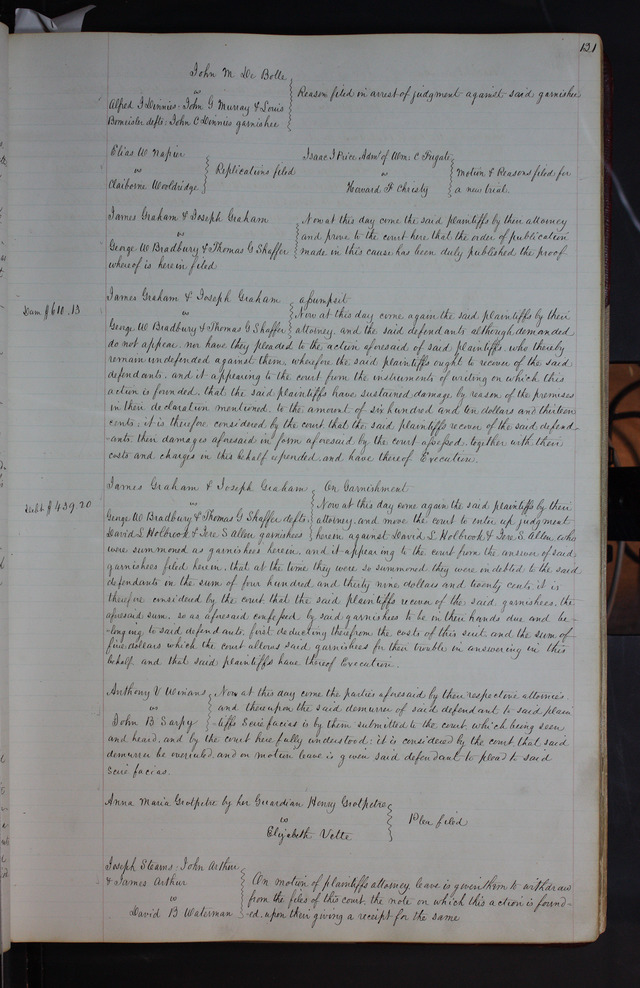 131
John M. De Bolle
vs
Alfred J Dinnies, John G Murray & Louis
Bomeister defts. John C Dinnies garnishee
Reason filed in arrest of judgment against said garnishee
Elias W Napier
vs
Claiborne Wooldridge
Replications filed
Isaac J Price Admr of Wm. C Fugate
vs
Howard F Christy
Motion & Reasons filed for
a new trial
James Graham & Joseph Graham
vs
George W Bradbury & Thomas G Shaffer
Now at this day come the said plaintiffs by their attorney
and prove to the court here that the order of publication
made in this cause has been duly published the proof
whereof is herein filed
Dam $610.13
James Graham & Joseph Graham
vs
George W Bradbury & Thomas G Shaffer
assumpsit
Now at this day come again the said plaintiffs by their
attorney, and the said defendants although demanded
do not appear, nor have they pleaded to the action aforesaid of said plaintiffs, who thereby
remain undefended against them, wherefore the said plaintiffs ought to recover of the said
defendants, and it appearing to the court from the instruments of writing on which this
action is founded, that the said plaintiffs have sustained damage by reason of the premises
in their declaration mentioned, to the amount of six hundred and ten dollars and thirteen
cents; it is therefore considered by the court that the said plaintiffs recover of the said defend-
-ants their damages aforesaid in form aforesaid by the court assessed, together with their
costs and charges in this behalf expended, and have thereof Execution.
Debt $439.20
James Graham & Joseph Graham
vs
George W Bradbury & Thomas G Shaffer defts
David L Holbrook & Jere S Allen garnishees
On Garnishment
Now at this day come again the said plaintiffs by their
attorney, and move the court to enter up judgment
herein against David L Holbrook & Jere S Allen, who
were summoned as garnishees herein, and it appearing to the court from the answer of said
garnishees filed herein, that at the time they were so summoned they were indebted to the said
defendants in the sum of four hundred and thirty nine dollars and twenty cents, it is
therefore considered by the court, that the said plaintiffs recover of the said garnishees, the
aforesaid sum, so as aforesaid confessed by said garnishees to be in their hands due and be-
-longing to said defendants; first deducting therefrom the costs of this suit, and the sum of
five dollars which the court allows said garnishees for their trouble in answering in this
behalf and that said plaintiffs have thereof Execution.
Anthony V Winans
vs
John B Sarpy
Now at this day come the parties aforesaid by their respective attornies
and thereupon the said demurrer of said defendant to said plain
-tiffs Scire facias is by them submitted to the court, which being seen
and heard, and by the court here fully understood; it is considered by the court that said
demurrer be overruled, and on motion leave is given said defendant to plead to said
Scire facias.
Anna Maria Grolpetre by her Guardian Henry Grolpetre
vs
Elizabeth Vette
Plea filed
Joseph Stearns, John Arthur
& James Arthur
vs
David B Waterman
On motion of plaintiffs attorney, leave is given them to withdraw
from the files of this court, the note on which this action is found-
-ed, upon their giving a receipt for the same